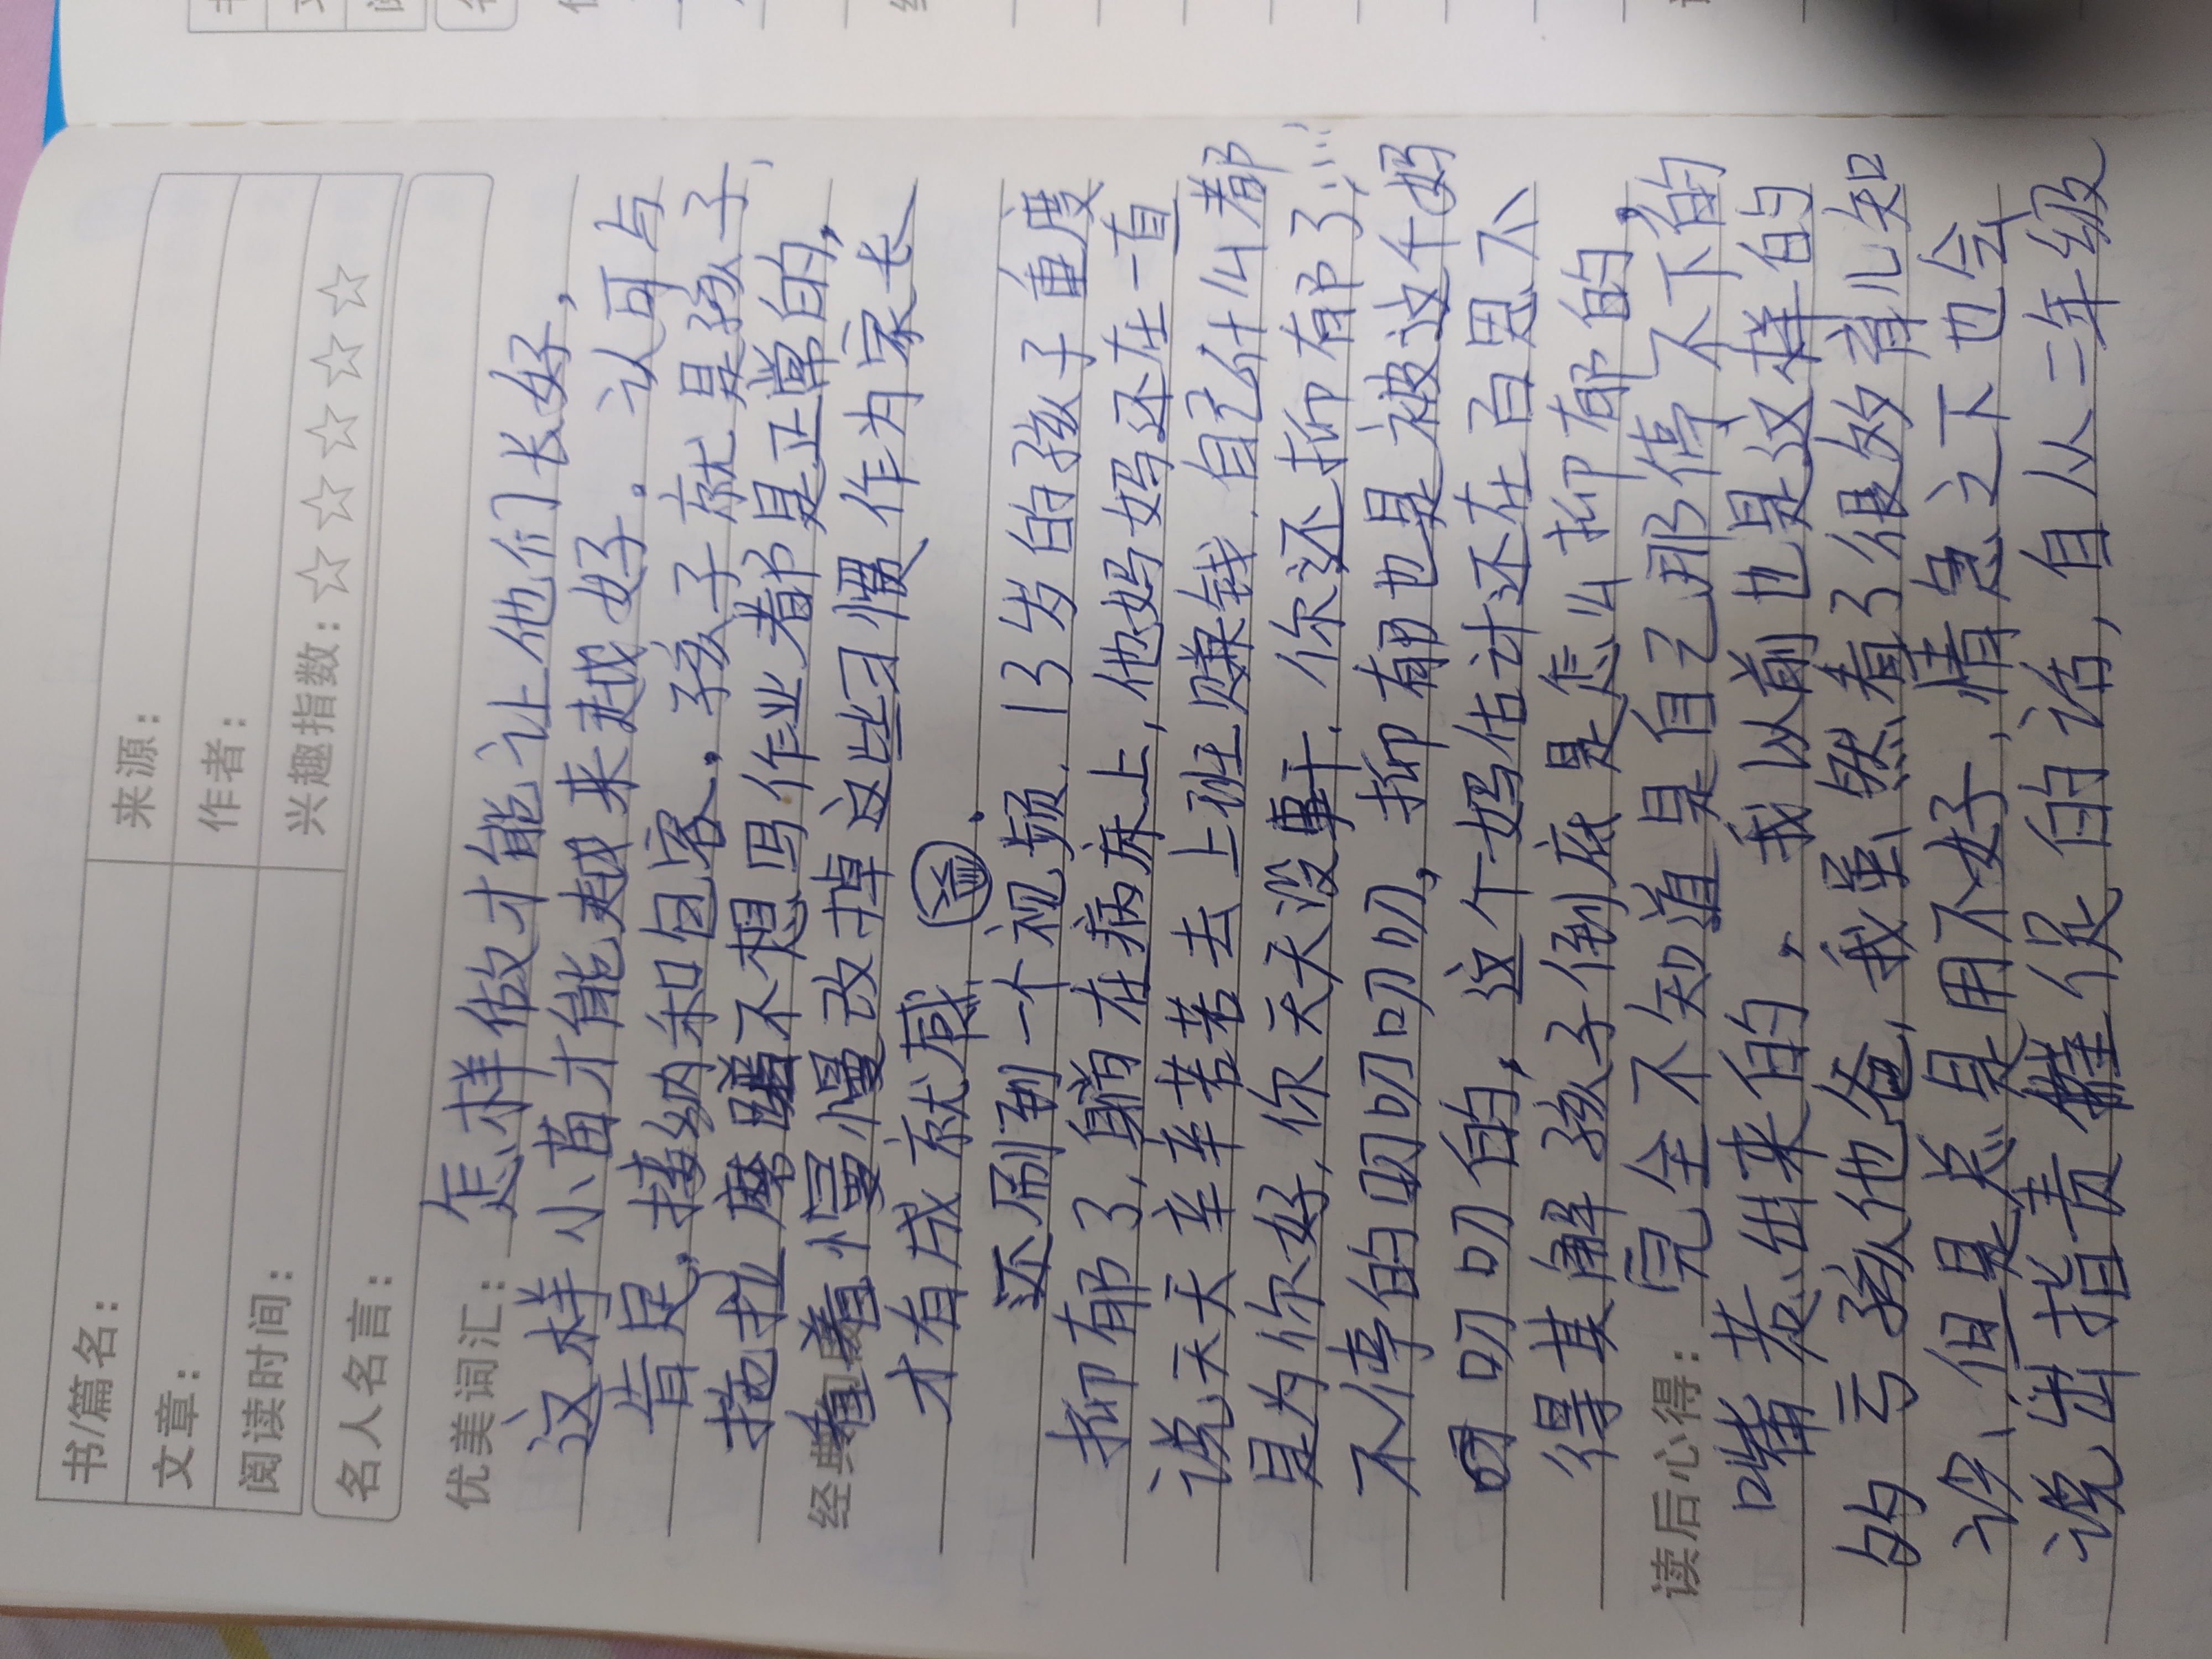 书/篇名：
来源：
文章：
作者：
阅读时间：
兴趣指数：☆☆☆☆☆
名人名言：
优美词汇：
怎样做才能让他们长好，
这样小苗才能越来越好。认可与
肯足，接纳和包容。孩子就是孩子，
拖拉磨蹭不想写作业都是正常的，
经典
着慢慢改掉这些习惯，作为家长
才有成就感
还刷到一个视频，13岁的孩子重度
抑郁了，躺在病床上，他妈妈还在一直
说天天辛辛苦苦去上班赚钱，自己什么都
是为你好，你天天没事干，你还抑郁了……
不停的叨叨叨叨，抑郁也是被这个妈
叨叨叨的，这个妈估计还在百思不
得其解孩子到底是怎么抑郁的，
读后心得：
完全不知道是自己那停不下的
嘴惹出来的，我以前也是这样的
的亏孩他爸，我虽然看了很多育儿知
识，但是总是用不好，情急之下也会
说出指责催促的话，自从二年级